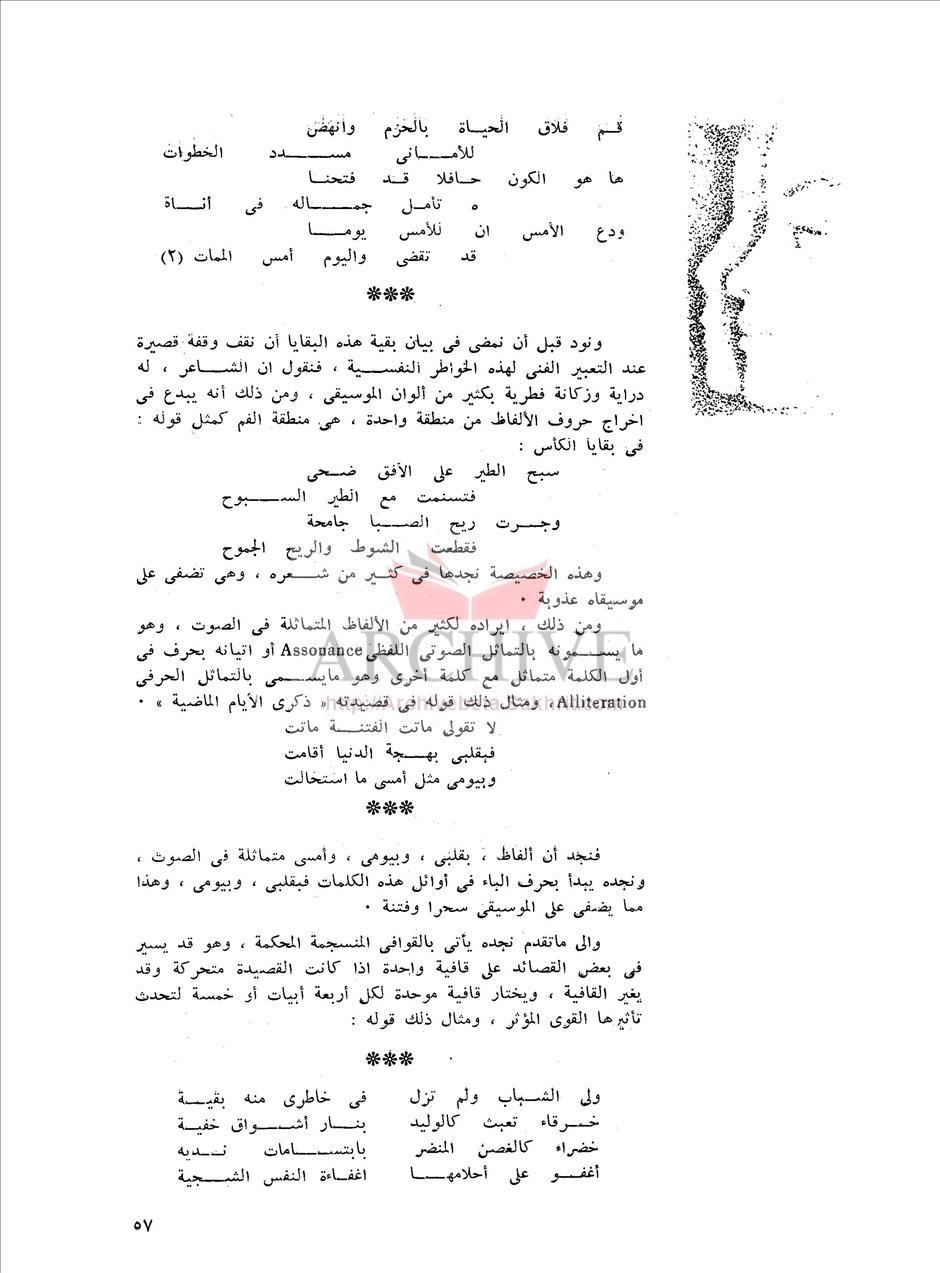 قـم فلاق الحيـاة بالحزم وانهض
للأمـانى مسـدد الخطوات
ها هو الكون حـافلا قـد فتحنـا
ه تأمـل جمـاله فى أنـاة
ودع الأمس ان للأمس يومـا
قد تقضى واليوم أمس الممات (٢)
***
ونود قبل أن نمضى فى بيان بقية هذه البقايا أن نقف وقفة قصيرة
عند التعبير الفنى لهذه الخواطر النفسـية ، فنقول ان الشـاعر ، له
دراية وزكانة فطرية بكثير من ألوان الموسيقى ، ومن ذلك أنه يبدع فى
اخراج حروف الألفاظ من منطقة واحدة ، هى منطقة الفم كمثل قوله :
فى بقايا الكأس :
سبح الطير على الأفق ضـحى
فتسنمت مع الطير السـبوح
وجـرت ريح الصـبا جامحة
فقطعت الشوط والريح الجموح
وهذه الخصيصة نجدها فى كثـير من شـعره ، وهى تضفى على
موسيقاه عذوبة .
ومن ذلك ، ايراده لكثير من الألفاظ المتماثلة فى الصوت ، وهو
ما يسـمونه بالتماثل الصوتى اللفظى Assonance أو اتيانه بحرف فى
أول الكلمة متماثل مع كلمة أخرى وهو مايسـمى بالتماثل الحرفى
Alliteration، ومثال ذلك قوله فى قصيدته « ذكرى الأيام الماضية » .
ARCHIVE
http://Archivebeta.Sakhrit.com
لا تقولى ماتت الفتنـة ماتت
فبقلبى بهـجة الدنيا أقامت
وبيومى مثل أمسى ما استحالت
***
فنجد أن ألفاظ ، بقلبى ، وبيومى ، وأمسى متماثلة فى الصوت ،
ونجده يبدأ بحرف الباء فى أوائل هذه الكلمات فبقلبى ، وبيومى ، وهذا
مما يضفى على الموسيقى سحرا وفتنة .
والى ماتقدم نجده يأتى بالقوافى المنسجمة المحكمة ، وهو قد يسير
فى بعض القصائد على قافية واحدة اذا كانت القصيدة متحركة وقد
يغير القافية ، ويختار قافية موحدة لكل أربعة أبيات أو خمسة لتحدث
تأثيرها القوى المؤثر ، ومثال ذلك قوله :
***
ولى الشـباب ولم تزل فى خاطرى منه بقيـة
خـرقاء تعبث كالوليد بنـار أشـواق خفية
خضراء كالغصن المنضر بابتسـامات نـديه
أغفـو على أحلامهـا اغفـاءة النفس الشـجية
٥٧